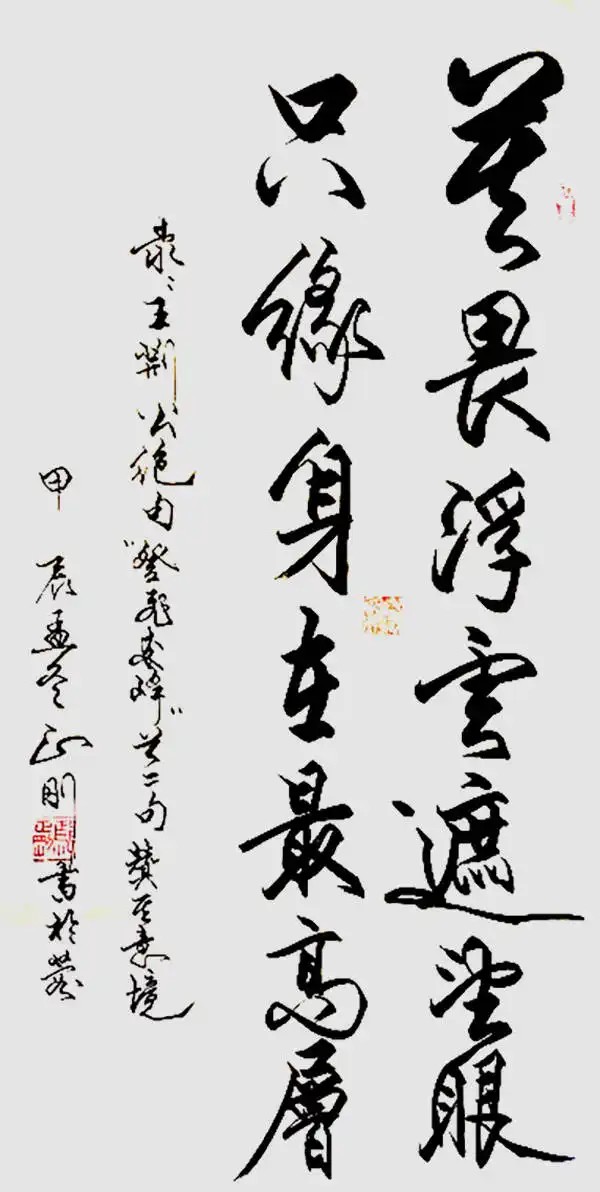 莫畏浮雲遮望眼
只緣身在最高層
王荆公絶句“登飛來峰”其二句贊其意境
甲辰孟冬正刚書於蓉